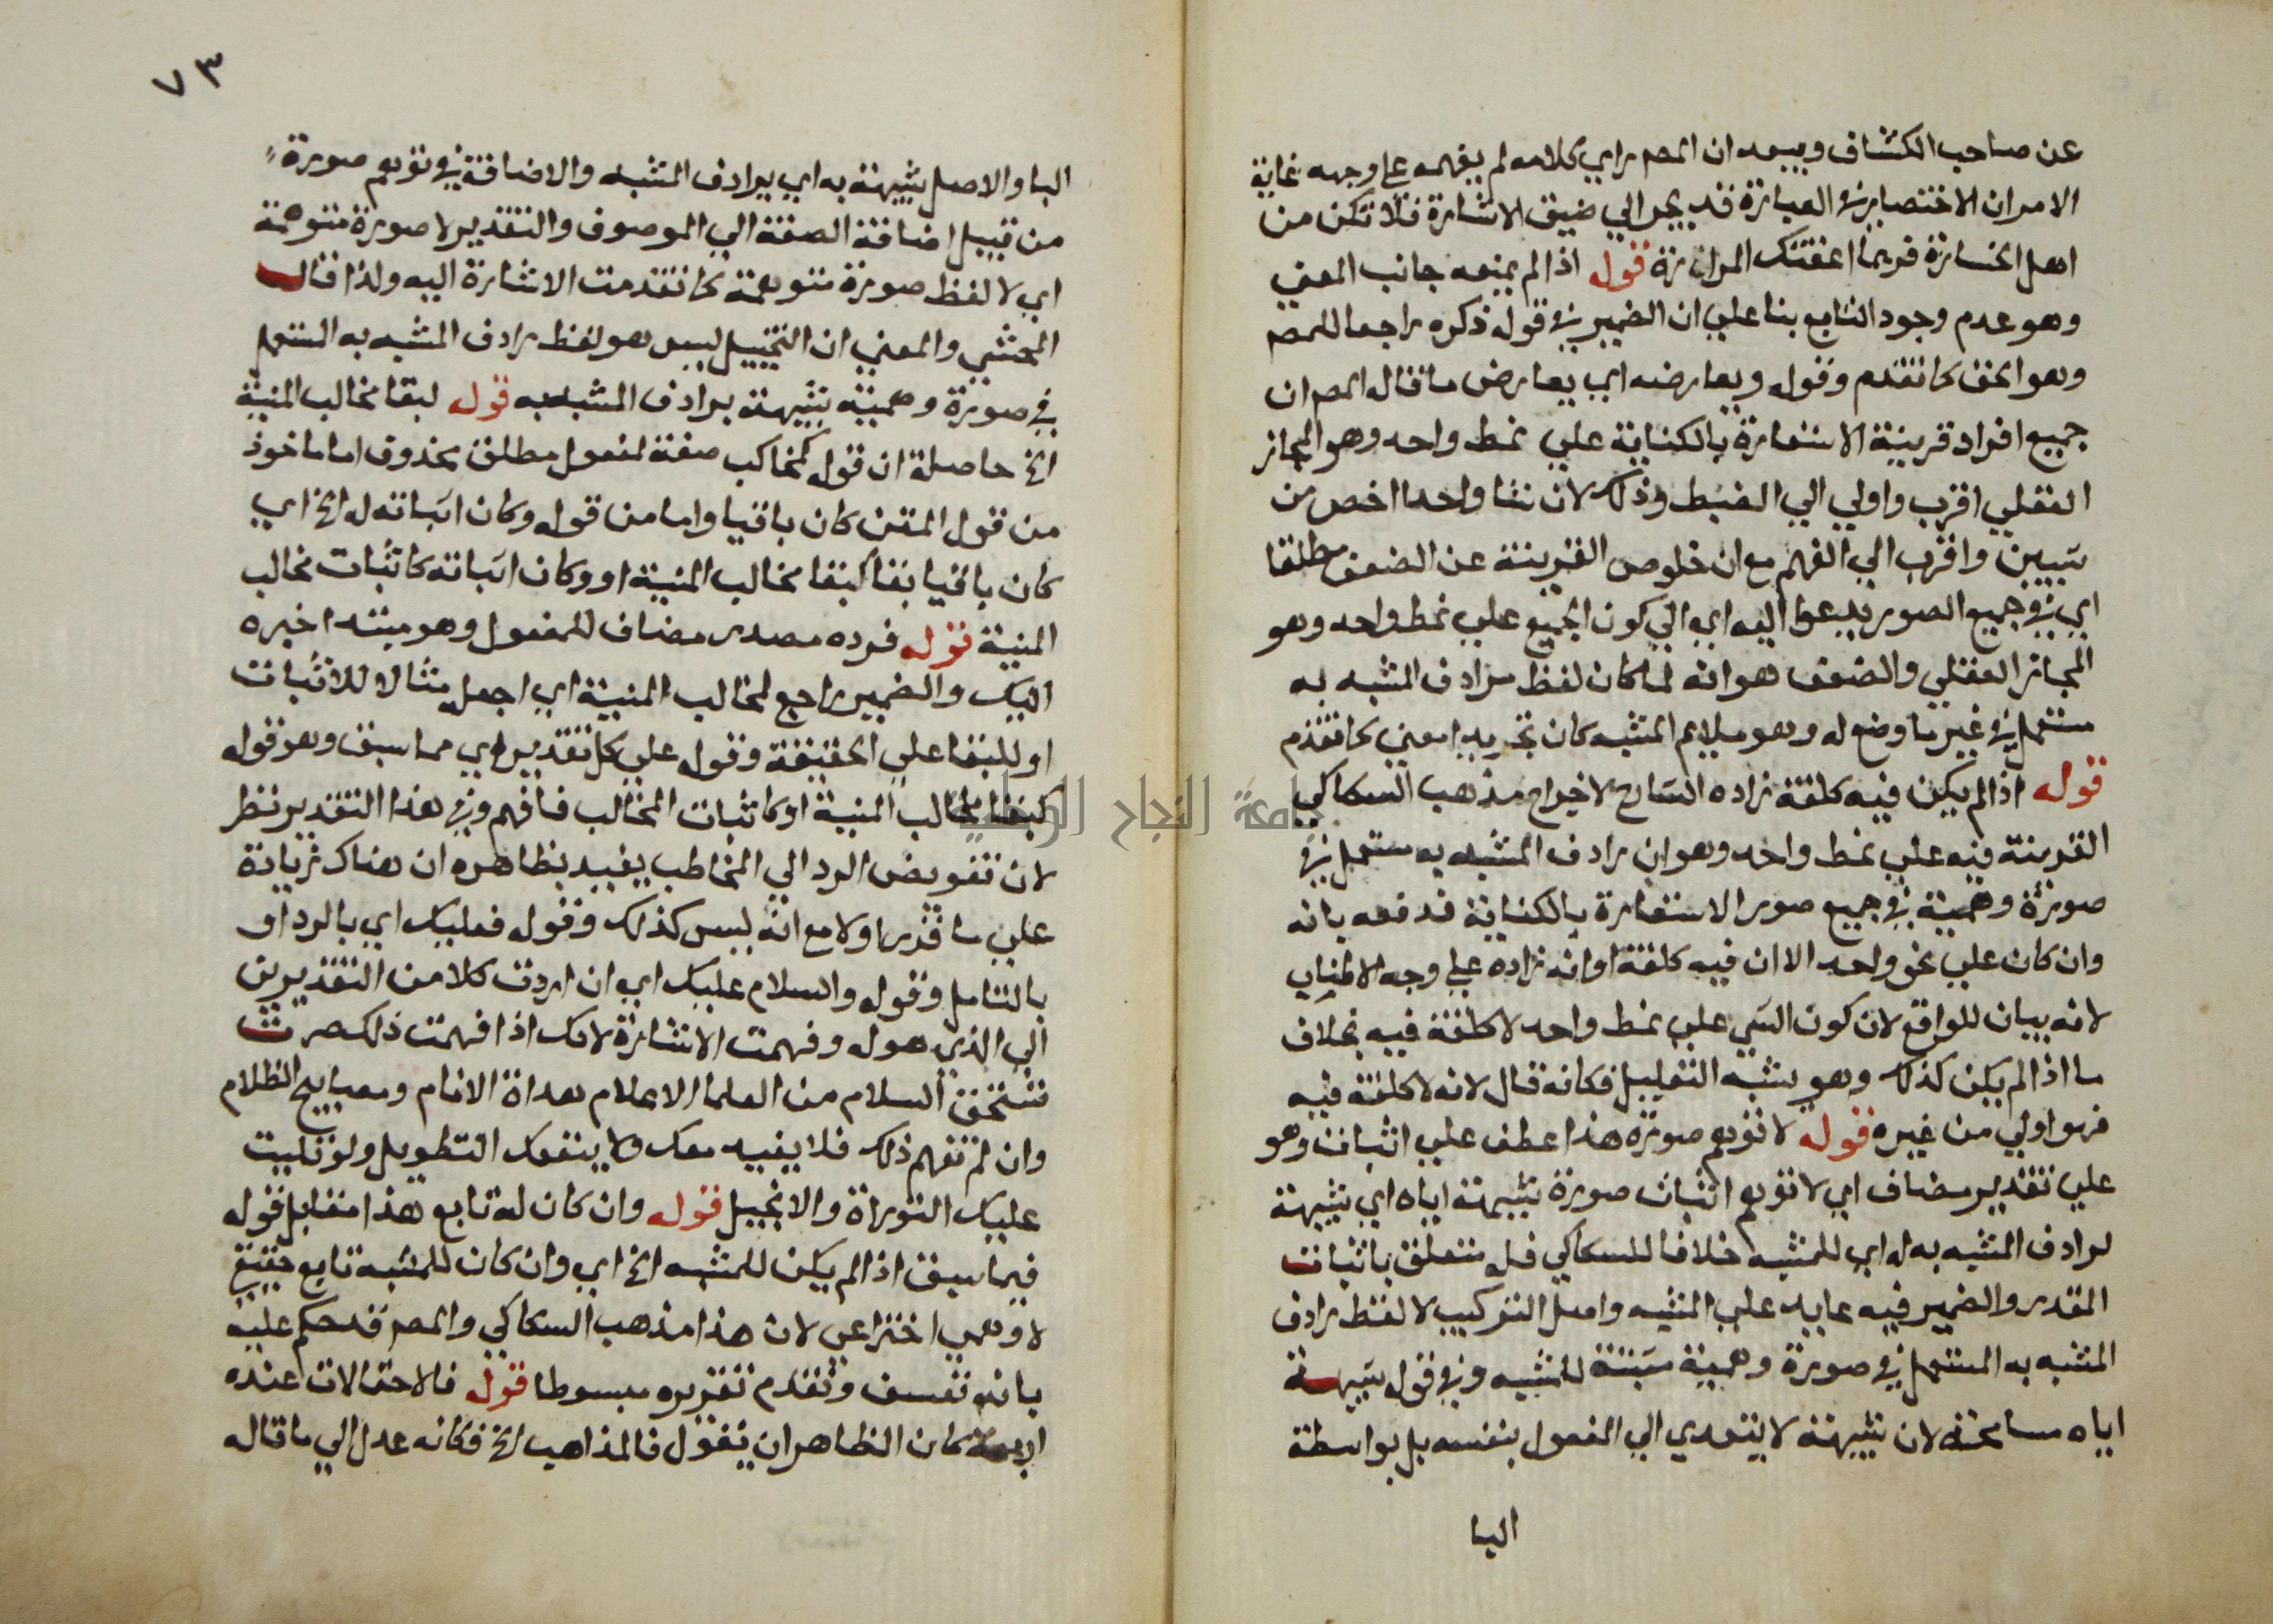 عن صاحب الكشاف ويبعد ان المص راي كلامه لم يفهمه علي وجهه غاية
الامر ان الاختصار في العبارة قد يجر الي ضيق الاشارة فلا تكن من
اهل الخسارة فربما اعقتك المرارة قوله اذا لم يمنعه جانب المعني
وهو عدم وجود التابع بنا علي ان الضمير في قوله ذكره راجعا للمص
وهو الحق كما تقدم وقوله ويعارضه اي يعارض ما قال المص ان
جميع افراد قرينة الاستعارة بالكناية علي نمط واحد وهو المجاز
العقلي اقرب واولي الي الضبط وذلك لان شا واحدا اخص من
شيين واقرب الي الفهم مع ان خلوص القرينة عن الضعف مطلقا
اي في جميع الصور يدعوا اليه اي الي كون الجميع علي نمط واحد وهو
المجاز العقلي والضعف هو انه لما كان لفظ مرادف المشبه به
مستعمل في غير ما وضع له وهو ملايم المشبه كان تجريدا معني كما تقدم
قوله اذا لم يكن فيه كلفة زاده الشارح لاخراج مذهب السكاكي
القرينة فيه علي نمط واحد وهو ان رادف المشبه به مستعمل في
صورة وهمية في جميع صور الاستعارة بالكناية فدفعه بانه
وان كان علي نحو واحد الا ان فيه كلفة او انه زاده علي وجه الاطناب
لانه بيان للواقع لان كون الشي علي نمط واحد لا كلفة فيه بخلاف
ما اذا لم يكن كذلك وهو يشبه التعليل فكانه قال لانه لا كلفة فيه
فهو اولي من غيره قوله لا توهم صورة هذا عطف علي اثبات وهو
علي تقدير مضاف اي لا توهم اثبات صورة شبيهة اياه اي شبيهة
لرادف المشبه به له اي للمشبه خلافا للسكاكي فله متعلق باثبات
المقدر والضمير فيه عايد علي المشبه واصل التركيب لا لفظ رادف
المشبه به المستعمل في صورة وهمية مثبتة للمشبه وفي قوله شبيهة
اياه مسامحة لان شبيهة لا يتعدي الي المفعول بنفسه بل بواسطة
البا
٧٣
البا والاصل شبيهة به اي برادف المشبه والاضافة في توهم صورة
من قبيل اضافة الصفة الي الموصوف والتقدير لا صورة متوهمة
اي لا لفظ صورة متوهمة كما تقدمت الاشارة اليه ولذا قال
المحشي والمعني ان التخييل ليس هو لفظ رادف المشبه به المستعمل
في صورة وهمية شبيهة برادف المشبه به قوله لبقا مخالب المنية
الخ حاصله ان قوله كمخالب صفة لمفعول مطلق محذوف اما ماخوذ
من قول المتن كان باقيا واما من قوله وكان اثباته له الخ اي
كان باقيا بقا كبقا مخالب المنية او وكان اثباته كاثبات مخالب
المنية قوله فرده مصدر مضاف للمفعول وهو مبتدا خبره
اليك والضمير راجع لمخالب المنية اي اجعل مثالا للاثبات
او للبقا علي الحقيقة وقوله علي كل تقدير اي مما سبق وهو قوله
كبقا مخالب المنية او كاثبات المخالب فافهم وفي هذا التقدير نظر
لان تفويض الرد الي المخاطب يفيد بظاهره ان هناك زيادة
علي ما قدر اولا مع انه ليس كذلك وقوله فعليك اي بالرد او
بالتامل وقوله والسلام عليك اي ان اردت كلا من التقديرين
الي الذي هو له وفهمت الاشارة لانك اذا فهمت ذلك صرت
تستحق السلام من العلما الاعلام هداة الانام ومصابيح الظلام
وان لم تفهم ذلك فلا يفيد معك ولا ينفعك التطويل ولو تليت
عليك التوراة والانجيل قوله وان كان له تابع هذا مقابل قوله
فيما سبق اذا لم يكن للمشبه الخ اي وان كان للمشبه تابع حقيقي
لا وهمي اختراعي لان هذا مذهب السكاكي والمص قد حكم عليه
بانه تعسف وتقدم تقريره مبسوطا قوله فالاحتمالات عنده
اربعة كان الظاهر ان يقول فالمذاهب الخ فكانه عدل الي ما قاله
جامعة النجاح الوطنية